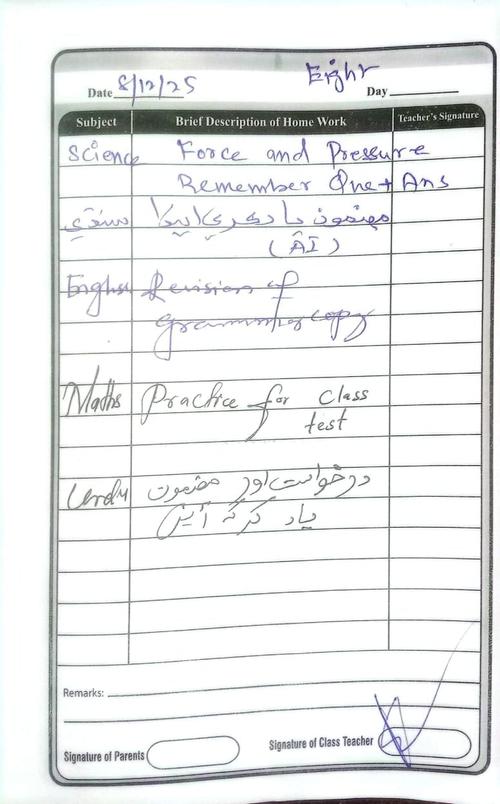 Eight
Date 8/12/25 Day
Subject Brief Description of Home Work Teacher's Signature
Science Force and Pressure
Remember Que + Ans
سنڌي مضمون ياد ڪري
(AI)
English Revision of
grammar copy
Maths Practice for class
test
Urdu درخواست اور مضمون
یاد کرکہ آئیں
Remarks:
Signature of Parents Signature of Class Teacher